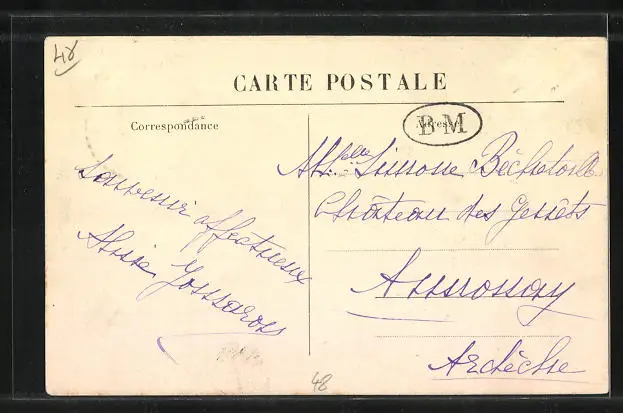 48
CARTE POSTALE
Correspondance
Adresse
BM
Souvenir affectueux
Melle Simone Béchetoille
Château des Genêts
Annonay
Ardèche
48